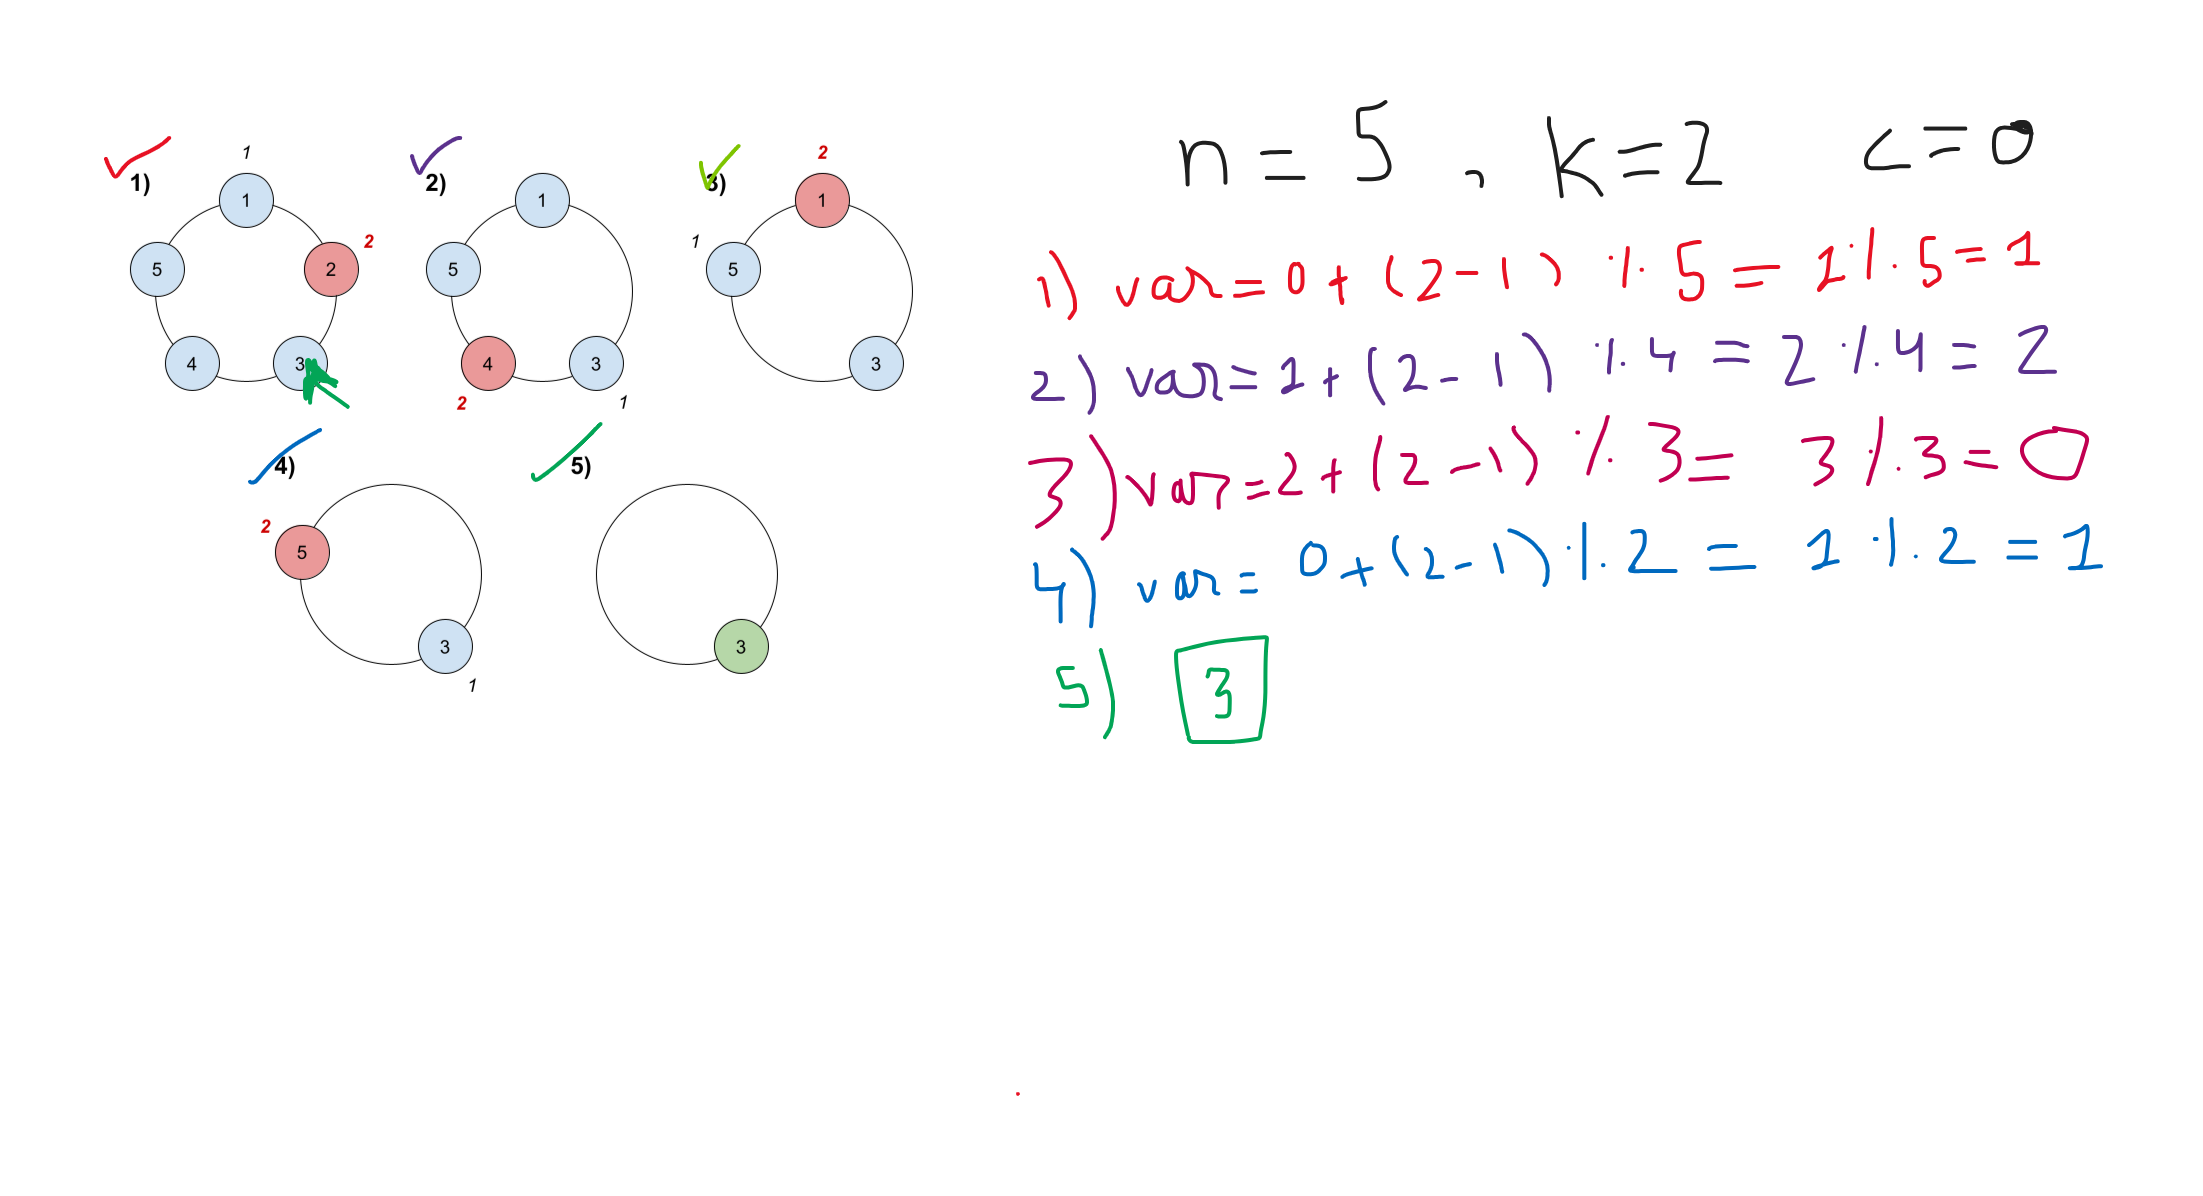 1)
1
1
2
2
3
4
5
2)
1
5
4
3
2
1
3)
2
1
1
5
3
4)
2
5
3
1
5)
3
n = 5 , k = 2 c = 0
1) var = 0 + (2 - 1) % 5 = 1 % 5 = 1
2) var = 1 + (2 - 1) % 4 = 2 % 4 = 2
3) var = 2 + (2 - 1) % 3 = 3 % 3 = 0
4) var = 0 + (2 - 1) % 2 = 1 % 2 = 1
5) 3